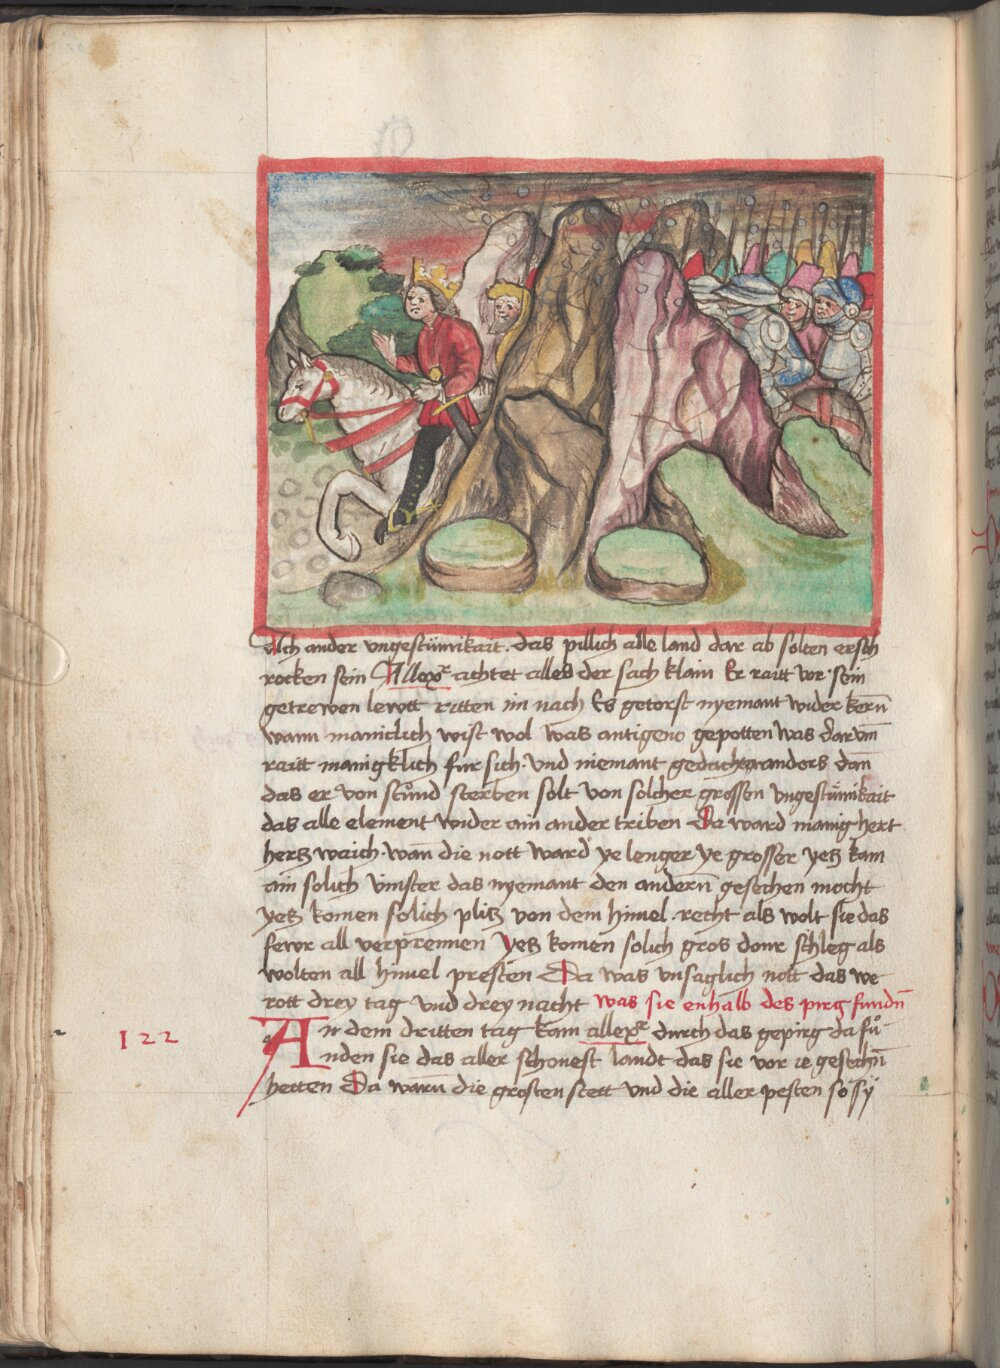 Auch ander vngestümikait. das pillich alle land dar ab solten ersch
rocken sein Allexr achtet alles der sach klain Er raitt vor sein
getrewen lewtt ritten im nach Es getorst nyemant wider kern̄
wann maniclich wist wol was antigeno gepotten was darvm̄
raitt manigklich fur sich. vnd niemant gedacht anders dan̄
das er von stůnd sterben solt von solcher grossen vngestümikait
das alle element wider ain ander triben Da ward manig hert
hertz waich. wan̄ die nott ward ye lenger ye grosser yetz kam
ain solich vinster das nyemant den andern̄ gesechen mocht
yetz komen solich plitz von dem himel. recht als wolt sie das
fewr all verprennen Yetz komen solich gros donr schleg als
wolten all himel presten Da was vnsaglich nott das we
rott drey tag vnd drey nacht was sie enhalb des pirg fundn̄
122
An dem dritten tag kam allexr durch das gepirg da fů
nden sie das aller schonest landt das sie vor ie gesechn̄
hetten Da warn die grosten stett vnd die aller pesten so sy